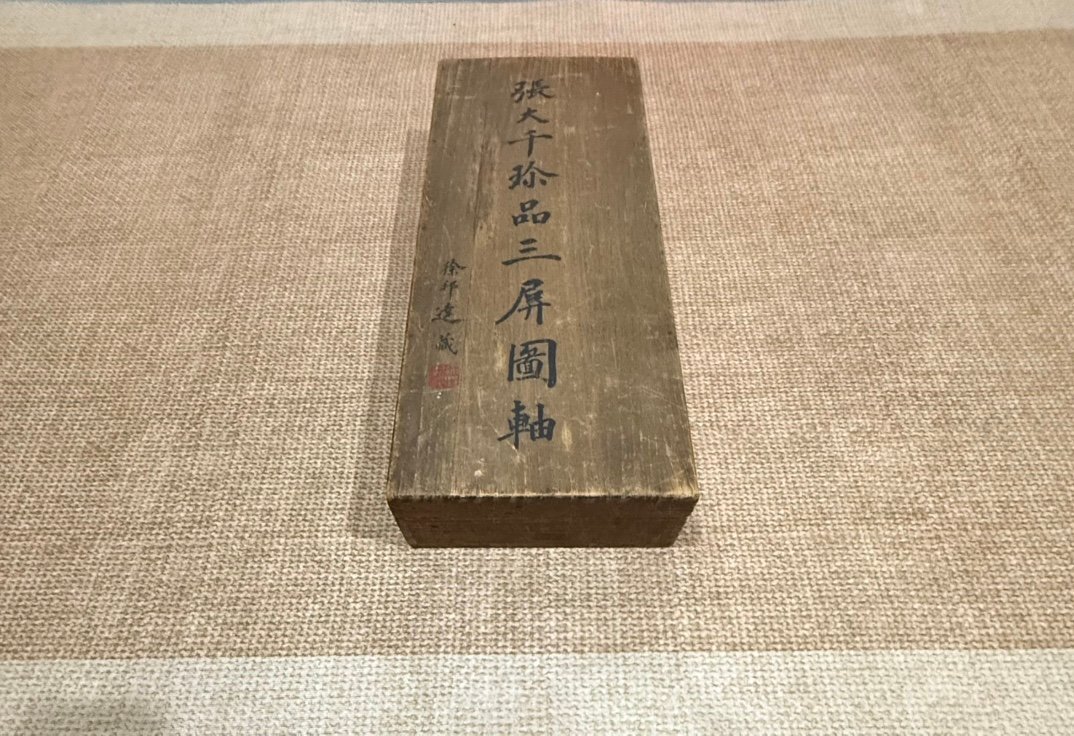 張大千珍品三屏圖軸
徐邦達藏